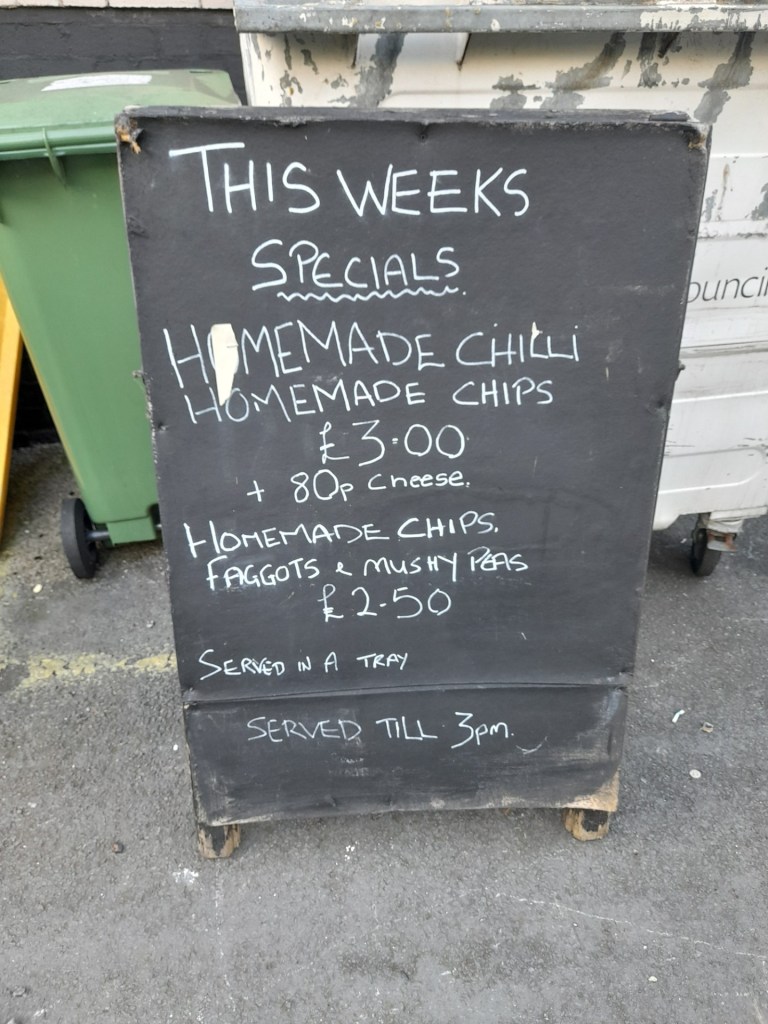 THIS WEEKS
SPECIALS
HOMEMADE CHILLI
HOMEMADE CHIPS
£3.00
+ 80p Cheese.
HOMEMADE CHIPS.
FAGGOTS & MUSHY PEAS
£2.50
SERVED IN A TRAY
SERVED TILL 3pm.